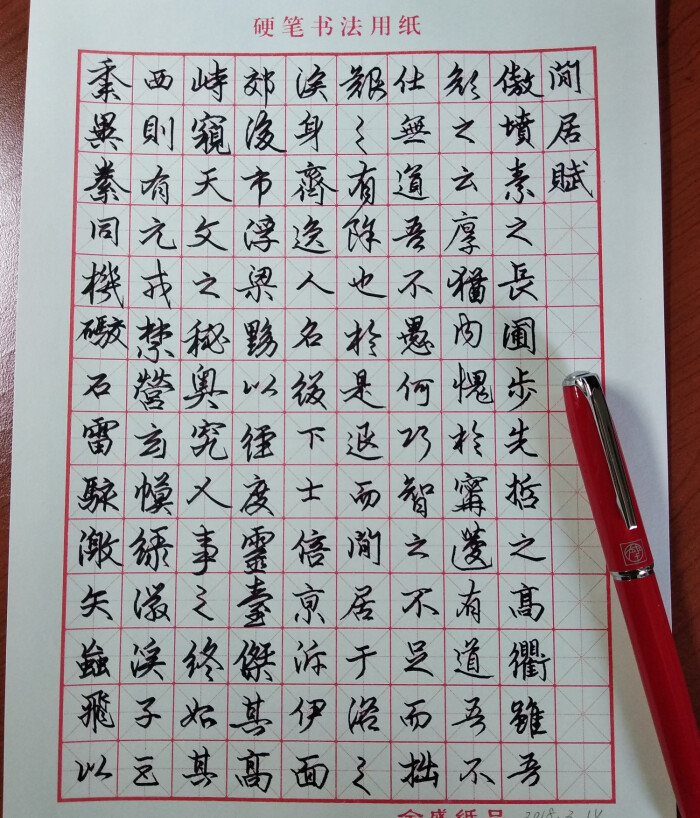 硬笔书法用纸
閒居賦
傲墳素之長圃步先哲之高衢雖吾
顏之云厚猶內愧於甯蘧有道吾不
仕無道吾不愚何巧智之不足而拙
艱之有除也於是退而閒居于洛之
涘身齊逸人名綴下士倍京泝伊面
郊後市浮梁黝以徑度靈臺傑其高
峙窺天文之秘奧究人事之終始其
西則有元戎禁營玄幙綠徽溪子巨
黍異絭同機礮石雷駭激矢蝱飛以
盛纸品